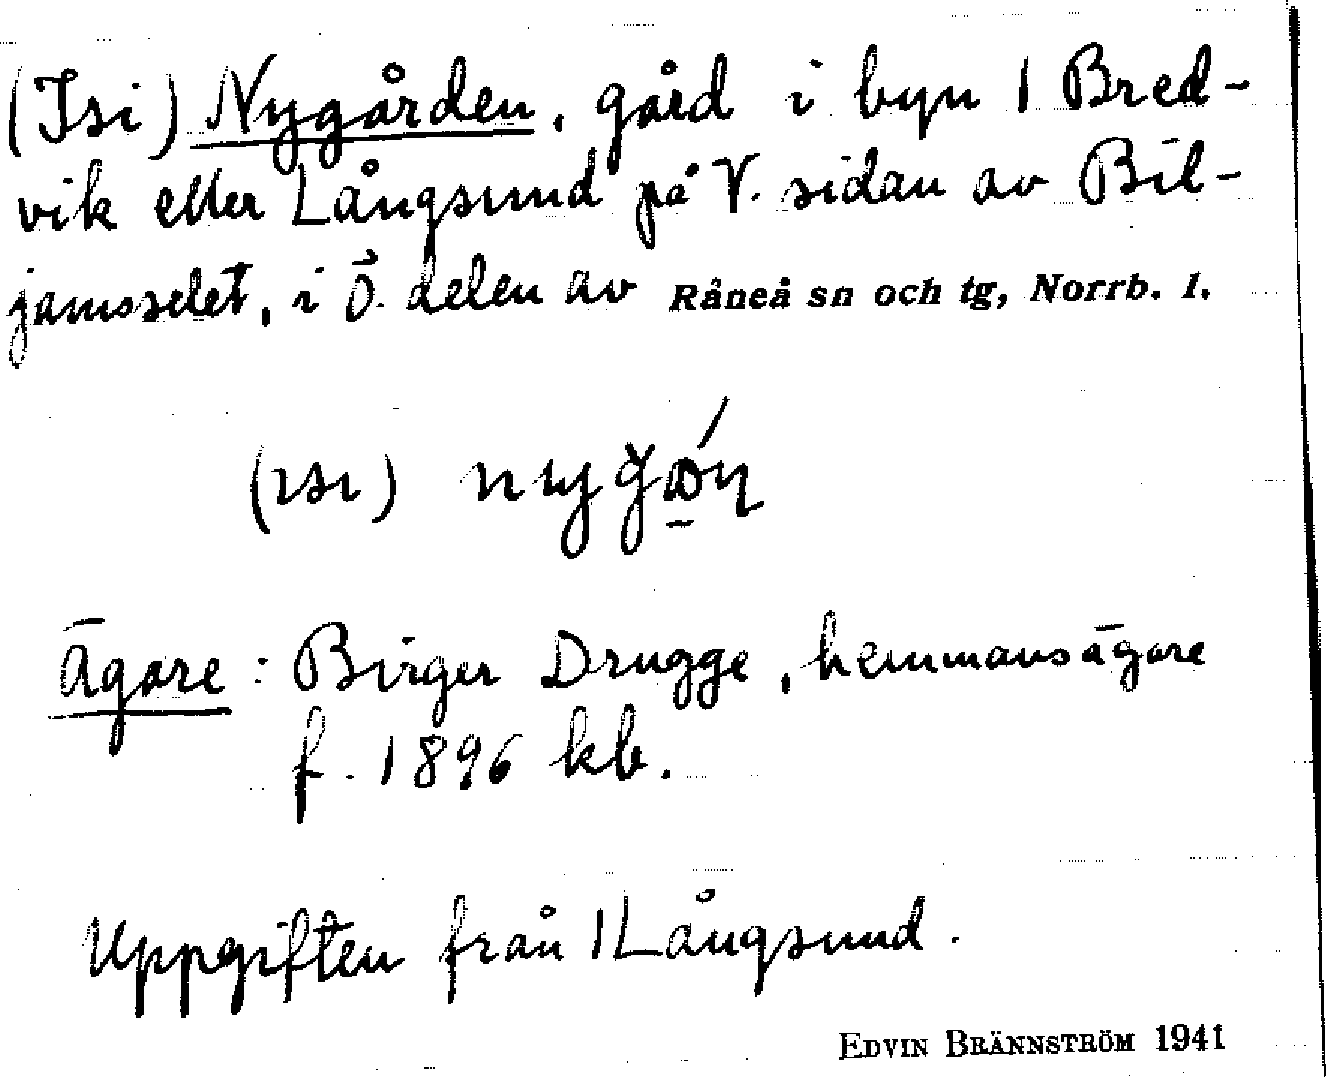 (Isi) Nygården, gård i byn 1 Bred-
vik eller Långsund på V. sidan av Bil-
jamsselet, i Ö. delen av Råneå sn och tg, Norrb. l.
(ısı)
Ägare: Birger Drugge, hemmansägare
f. 1896 kb.
Uppgiften från 1 Långsund.
EDVIN BRÄNNSTRÖM 1941